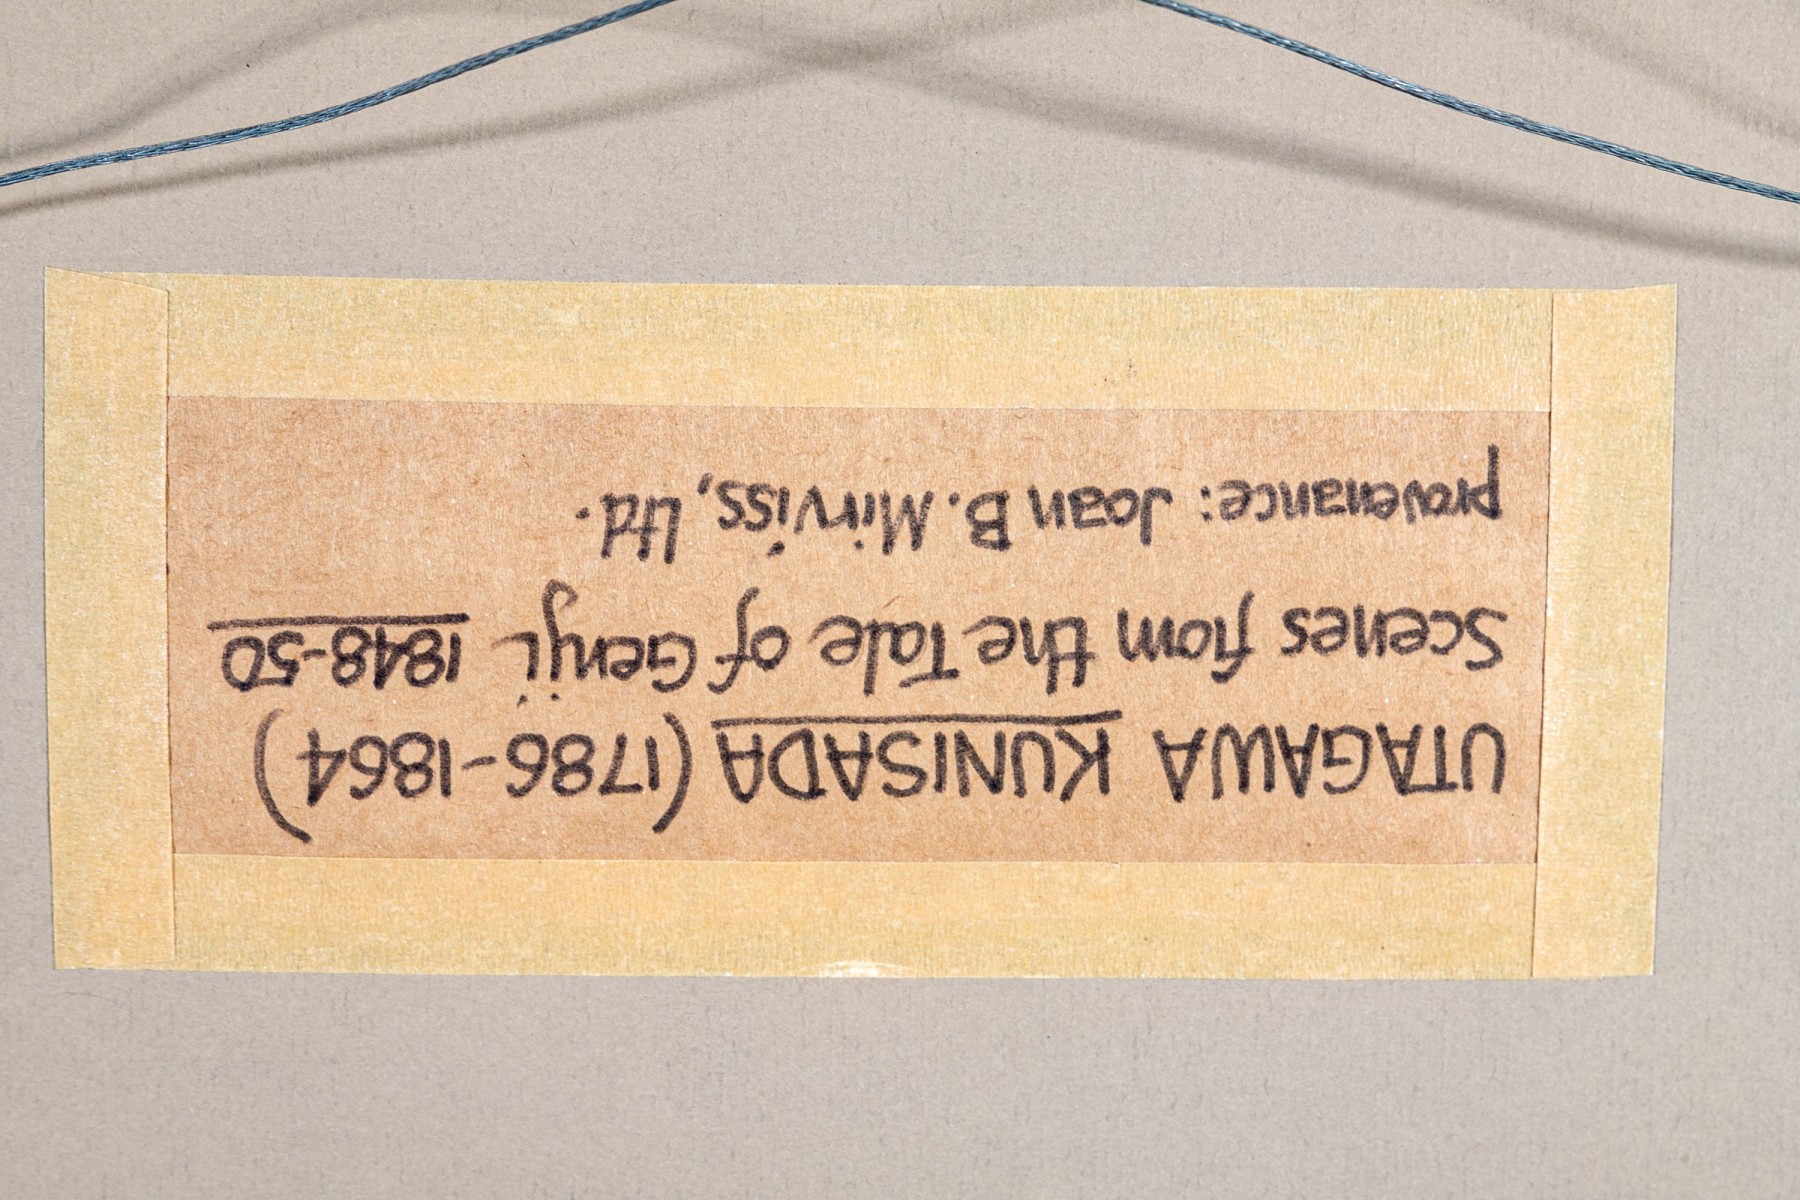 UTAGAWA KUNISADA (1786-1864)
Scenes from the Tale of Genji 1848-50
provenance: Joan B. Mirviss, Ltd.